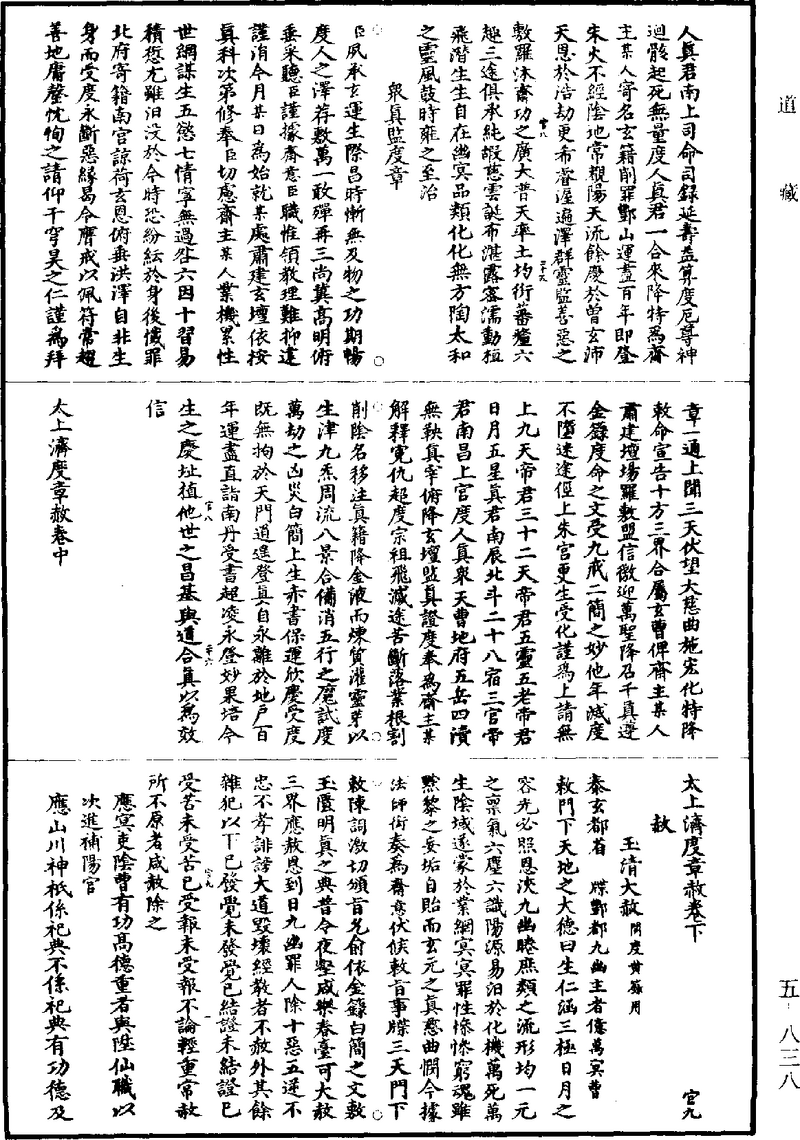 道藏
人真君南上司命司錄延壽益算度厄尊神
迴骸起死無量度人真君一合來降特為齋
主某人寄名玄籍削罪酆山運盡百年即登
朱火不經陰地常覩陽天流餘慶於曾玄沛
天恩於浩劫更希睿渥遍澤群靈監善惡之
敷羅沐齋功之廣大普天率土均衍蕃釐六
趣三途俱承純嘏慈雲誕布湛露露濡動植
飛潛生生自在幽冥品類化化無方陶太和
之靈風鼓時雍之至治
眾真監度章
臣夙承玄運生際昌時慚無及物之功期暢
度人之澤荐敷萬一敢殫再三尚冀高明俯
垂采聽臣謹據齋意臣職惟領教理難抑違
謹涓今月某日為始就某處肅建玄壇依按
真科次第修奉臣切慮齋主某人業機累性
世網謀生五慾七情寧無過咎六因十習易
積愆尤雖汨沒於今時恐紛紜於身後懺罪
北府寄籍南宮諒荷玄恩俯垂洪澤自非生
身而受度永斷惡緣曷令膺戒以佩符常超
善地庸罄忱恂之請仰干穹昊之仁謹為拜
章一通上聞三天伏望大慈曲施宏化特降
敕命宣告十方三界合屬玄曹俾齋主某人
肅建壇場羅敷盟信徼迎萬聖降召千真遵
金籙度命之文受九戒二簡之妙他年滅度
不墮迷途徑上朱宮更生受化謹為上請無
上九天帝君三十二天帝君五靈五老帝君
日月五星真君南辰北斗二十八宿三官帝
君南昌上宮度人真眾天曹地府五岳四瀆
無鞅真宰俯降玄壇監真證度奉為齋主某
解釋冤仇超度宗祖飛滅途苦斷落業根割
削陰名移注真籍降金液而煉質灌靈芽以
生津九炁周流八景合備消五行之魔試度
萬劫之凶災白簡上生赤書保運欣慶受度
既無拘於天門道進登真自永離於地戶百
年運盡直詣南丹受書超凌永登妙果培今
生之慶址植他世之昌基與道合真以為效
信
太上濟度章赦卷中
太上濟度章赦卷下 官九
赦
玉清大赦 開度黃籙用
泰玄都省 牒酆都九幽主者億萬冥曹
敕門下天地之大德曰生仁涵三極日月之
容光必照恩浹九幽睠庶類之流形均一元
之稟氣六塵六識陽源易汨於化機萬死萬
生陰域遂蒙於業網冥冥罪性慘慘窮魂雖
黙黎之妄垢自貽而玄元之真慈曲憫今據
法師銜奏為齋意伏俟敕旨事牒三天門下
敕陳詞激切頒旨允俞依金籙白簡之文敷
玉匱明真之典昔令夜壑咸樂春臺可大赦
三界應赦恩到日九幽罪人除十惡五逆不
忠不孝誹謗大道毀壞經教者不赦外其餘
雜犯以下已發覺未發覺已結證未結證已
受苦未受苦已受報未受報不論輕重常赦
所不原者咸赦除之
應冥吏陰曹有功高德重者與陞仙職以
次進補陽官
應山川神祇係祀典不係祀典有功德及
五·八三八